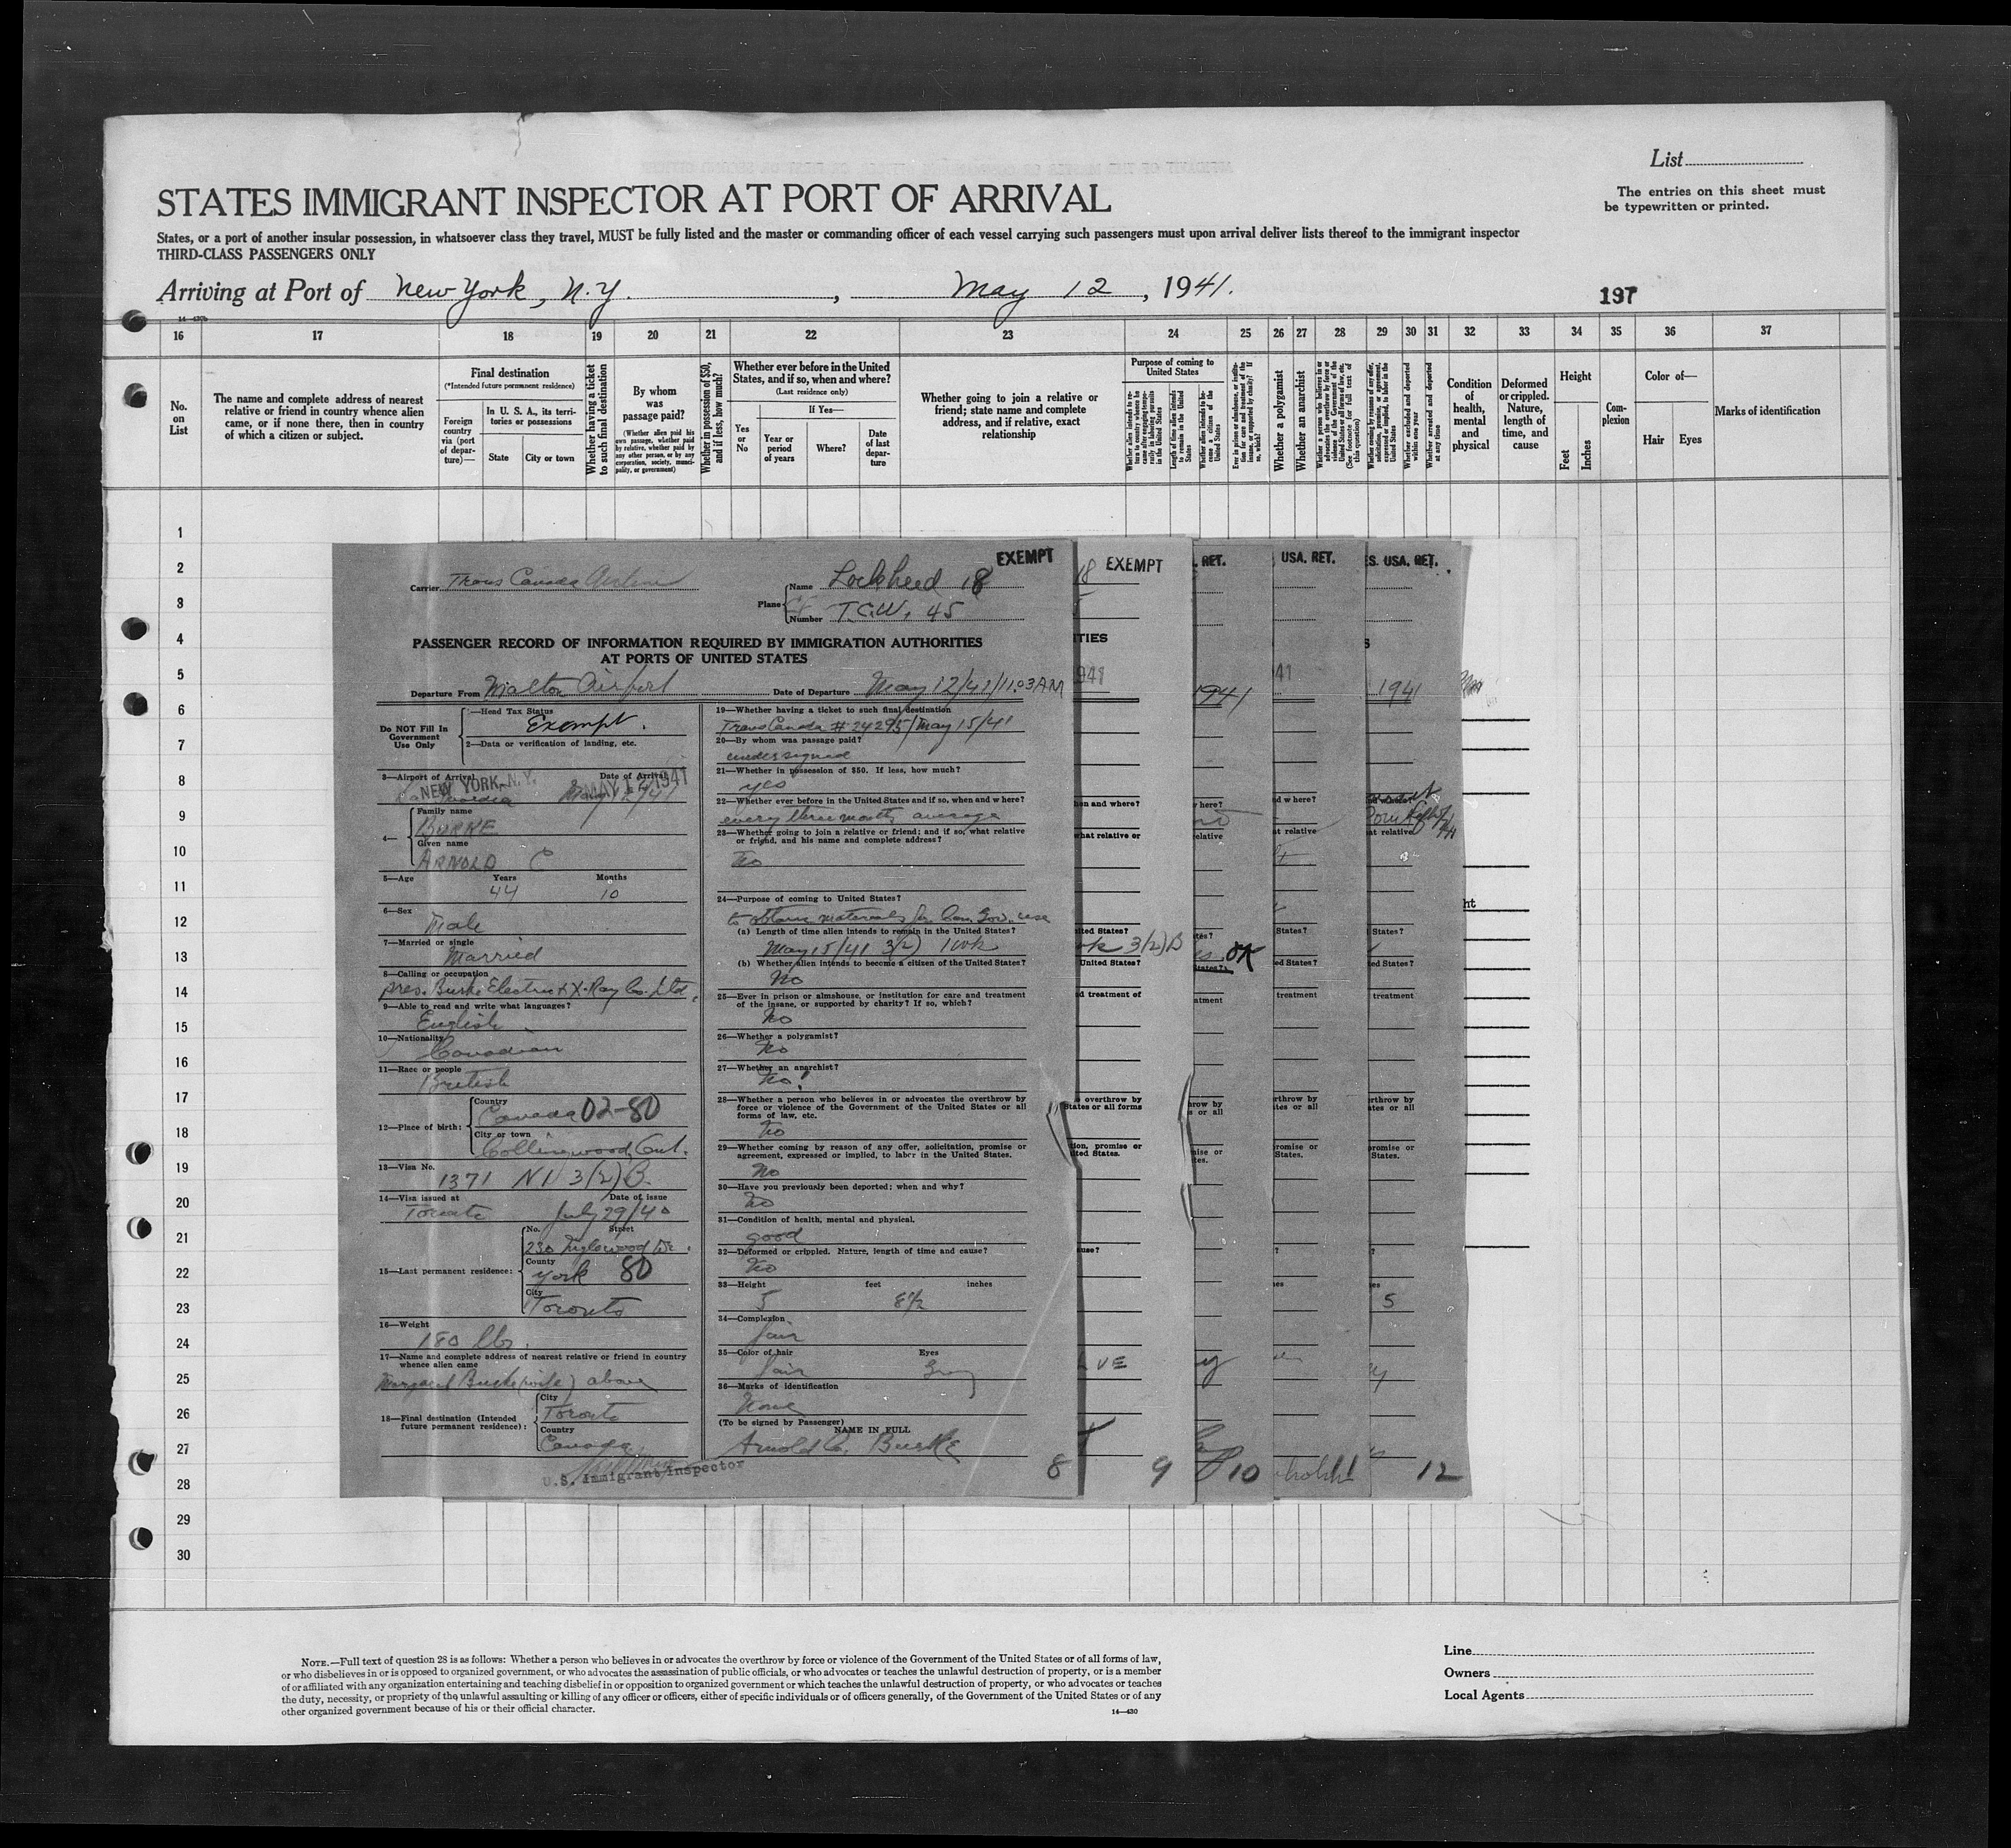 List
The entries on this sheet must
be typewritten or printed.
STATES IMMIGRANT INSPECTOR AT PORT OF ARRIVAL
States, or a port of another insular possession, in whatsoever class they travel, MUST be fully listed and the master or commanding officer of each vessel carrying such passengers must upon arrival deliver lists thereof to the immigrant inspector
THIRD-CLASS PASSENGERS ONLY
Arriving at Port of New York, N.Y. , May 12 , 1941.
197
16 17 18 19 20 21 22 23 24 25 26 27 28 29 30 31 32 33 34 35 36 37
No.
on
List
The name and complete address of nearest
relative or friend in country whence alien
came, or if none there, then in country
of which a citizen or subject.
Final destination
(*Intended future permanent residence)
Foreign
country
via (port
of depar-
ture)—
In U. S. A., its terri-
tories or possessions
State
City or town
Whether having a ticket
to such final destination
By whom
was
passage paid?
(Whether alien paid his
own passage, whether paid
by relative, whether paid by
any other person, or by any
corporation, society, munici-
pality, or government)
Whether in possession of $50,
and if less, how much?
Whether ever before in the United
States, and if so, when and where?
(Last residence only)
Yes
or
No
If Yes—
Year or
period
of years
Where?
Date
of last
depar-
ture
Whether going to join a relative or
friend; state name and complete
address, and if relative, exact
relationship
Purpose of coming to
United States
Length of time alien intends
to remain in the United
States
Whether alien intends to be-
come a citizen of the
United States
Whether a polygamist
Whether an anarchist
Whether excluded and deported
within one year
Whether arrested and deported
at any time
Condition
of
health,
mental
and
physical
Deformed
or crippled.
Nature,
length of
time, and
cause
Height
Feet
Inches
Com-
plexion
Color of—
Hair
Eyes
Marks of identification
1
2
3
4
5
6
7
8
9
10
11
12
13
14
15
16
17
18
19
20
21
22
23
24
25
26
27
28
29
30
EXEMPT
Carrier Trans Canada Airline
Plane
Name Lockheed 18
Number T.C.W. 45
PASSENGER RECORD OF INFORMATION REQUIRED BY IMMIGRATION AUTHORITIES
AT PORTS OF UNITED STATES
Departure From Malton Airport Date of Departure May 12/41/11.03AM
Do NOT Fill In
Government
Use Only
—Head Tax Status
Exempt.
2—Data or verification of landing, etc.
3—Airport of Arrival Date of Arrival
NEW YORK, N.Y. MAY 12 1941
4—
Family name
BURKE
Given name
ARNOLD C
5—Age Years Months
44 10
6—Sex
Male
7—Married or single
Married
8—Calling or occupation
pres. Burke Electric & X-Ray Co. Ltd.
9—Able to read and write what languages?
English
10—Nationality
Canadian
11—Race or people
British
12—Place of birth:
Country
Canada 02-80
City or town
Collingwood, Ont.
13—Visa No.
1371 NI 3(2)B.
14—Visa issued at Date of issue
Toronto July 29/40
15—Last permanent residence:
No. Street
230 Inglewood Dr.
County
York 80
City
Toronto
16—Weight
180 lbs.
17—Name and complete address of nearest relative or friend in country
whence alien came
Margaret Burke (wife) above
18—Final destination (Intended
future permanent residence):
City
Toronto
Country
Canada
U.S. Immigrant Inspector
19—Whether having a ticket to such final destination
Trans Canada # 24295/May 15/41
20—By whom was passage paid?
undersigned
21—Whether in possession of $50. If less, how much?
yes
22—Whether ever before in the United States and if so, when and where?
every three months average
23—Whether going to join a relative or friend; and if so, what relative
or friend, and his name and complete address?
No
24—Purpose of coming to United States?
to obtain materials for Can. Gov. use
(a) Length of time alien intends to remain in the United States?
May 15/41 3(2) 1 wk
(b) Whether alien intends to become a citizen of the United States?
No
25—Ever in prison or almshouse, or institution for care and treatment
of the insane, or supported by charity? If so, which?
No
26—Whether a polygamist?
No
27—Whether an anarchist?
No!
28—Whether a person who believes in or advocates the overthrow by
force or violence of the Government of the United States or all
forms of law, etc.
No
29—Whether coming by reason of any offer, solicitation, promise or
agreement, expressed or implied, to labor in the United States.
No
30—Have you previously been deported; when and why?
No
31—Condition of health, mental and physical.
good
32—Deformed or crippled. Nature, length of time and cause?
No
33—Height feet inches
5 8½
34—Complexion
fair
35—Color of hair Eyes
fair Grey
36—Marks of identification
None
(To be signed by Passenger)
NAME IN FULL
Arnold C. Burke
8
18 EXEMPT
wk 3(2)B
9
RET.
1941
OK
10
USA. RET.
41
S. USA. RET.
1941
5
12
NOTE.—Full text of question 28 is as follows: Whether a person who believes in or advocates the overthrow by force or violence of the Government of the United States or of all forms of law,
or who disbelieves in or is opposed to organized government, or who advocates the assassination of public officials, or who advocates or teaches the unlawful destruction of property, or is a member
of or affiliated with any organization entertaining and teaching disbelief in or opposition to organized government or which teaches the unlawful destruction of property, or who advocates or teaches
the duty, necessity, or propriety of the unlawful assaulting or killing of any officer or officers, either of specific individuals or of officers generally, of the Government of the United States or of any
other organized government because of his or their official character.
14—430
Line
Owners
Local Agents